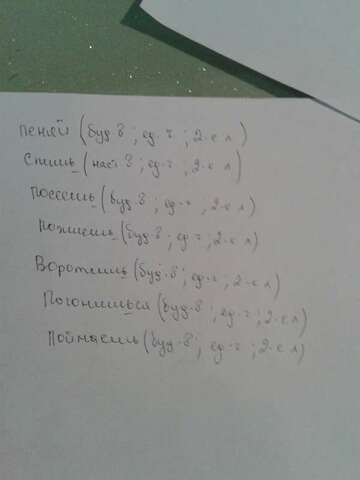 пеняй (буд в; ед. ч; 2-е л)
спишь (наст в; ед. ч; 2-е л)
посеешь (буд в; ед. ч; 2-е л)
пожнешь (буд в; ед. ч; 2-е л)
Воротишь (буд. в; ед. ч; 2-е л)
Погонишься (буд в; ед. ч; 2-е л)
поймаешь (буд в; ед. ч; 2-е л)